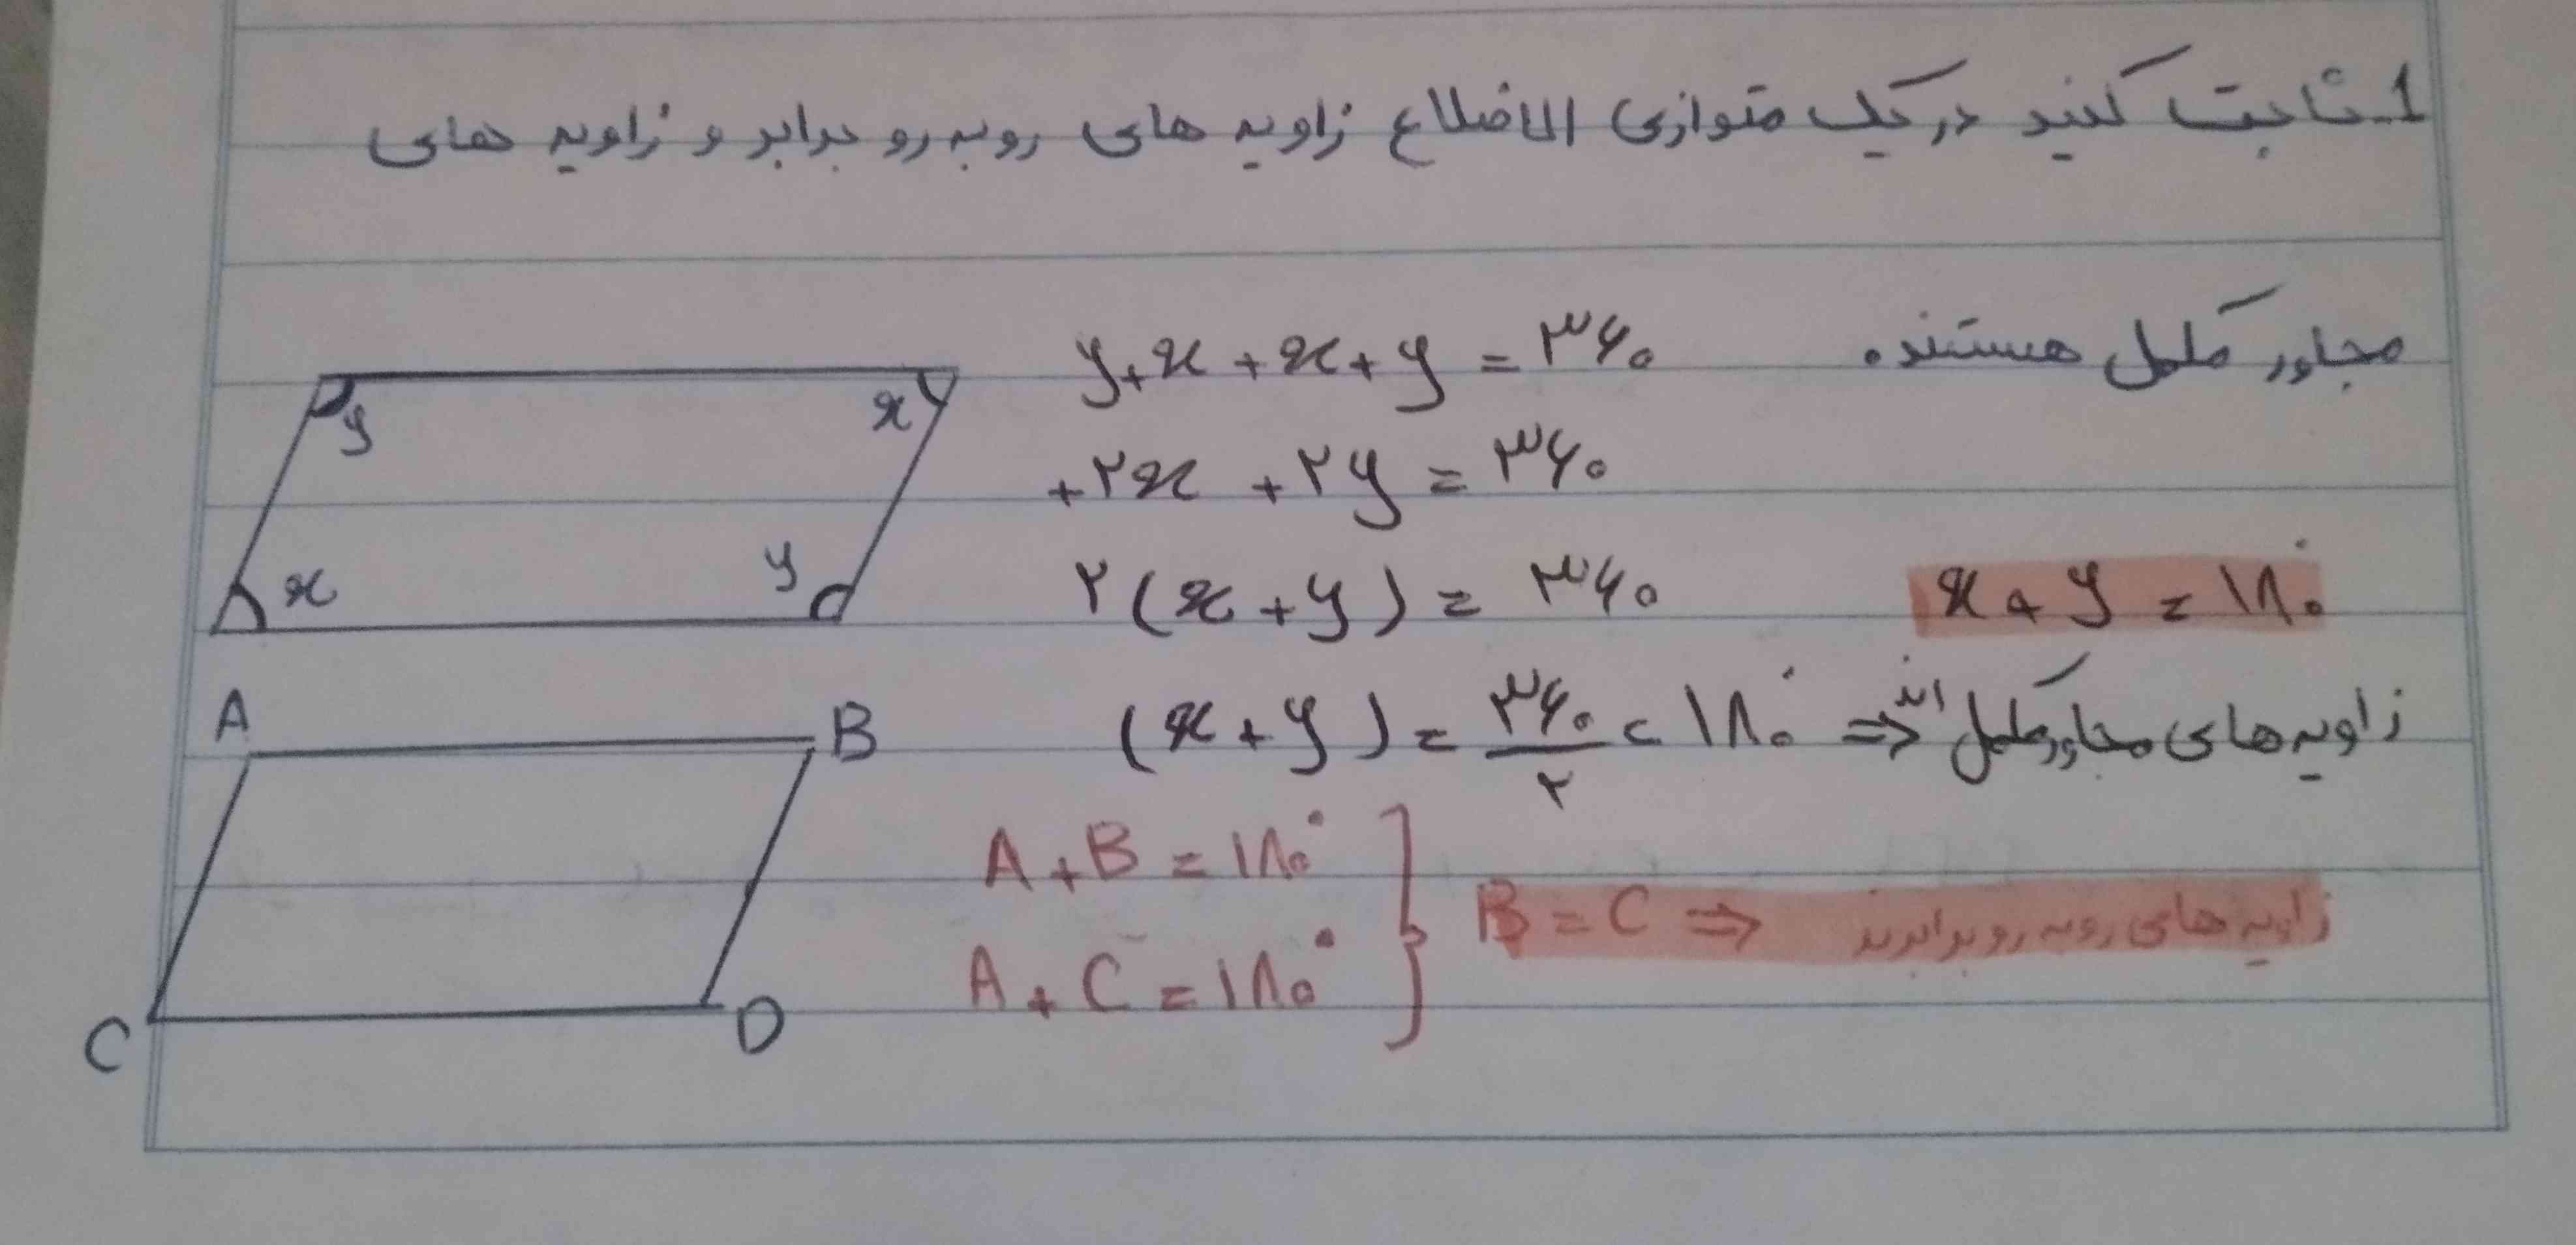 1- ثابت کنید در یک متوازی الاضلاع زاویه های روبه رو برابر و زاویه های
مجاور مکمل هستند.
y+x+x+y=۳۶۰
+۲x+۲y=۳۶۰
۲(x+y)=۳۶۰ x+y=۱۸۰°
(x+y)=۳۶۰/۲=۱۸۰° ⇒ زاویه های مجاور مکمل اند
A+B=۱۸۰°
B=C ⇒ زاویه های روبه رو برابرند
A+C=۱۸۰°
y x
x y
A B
C D